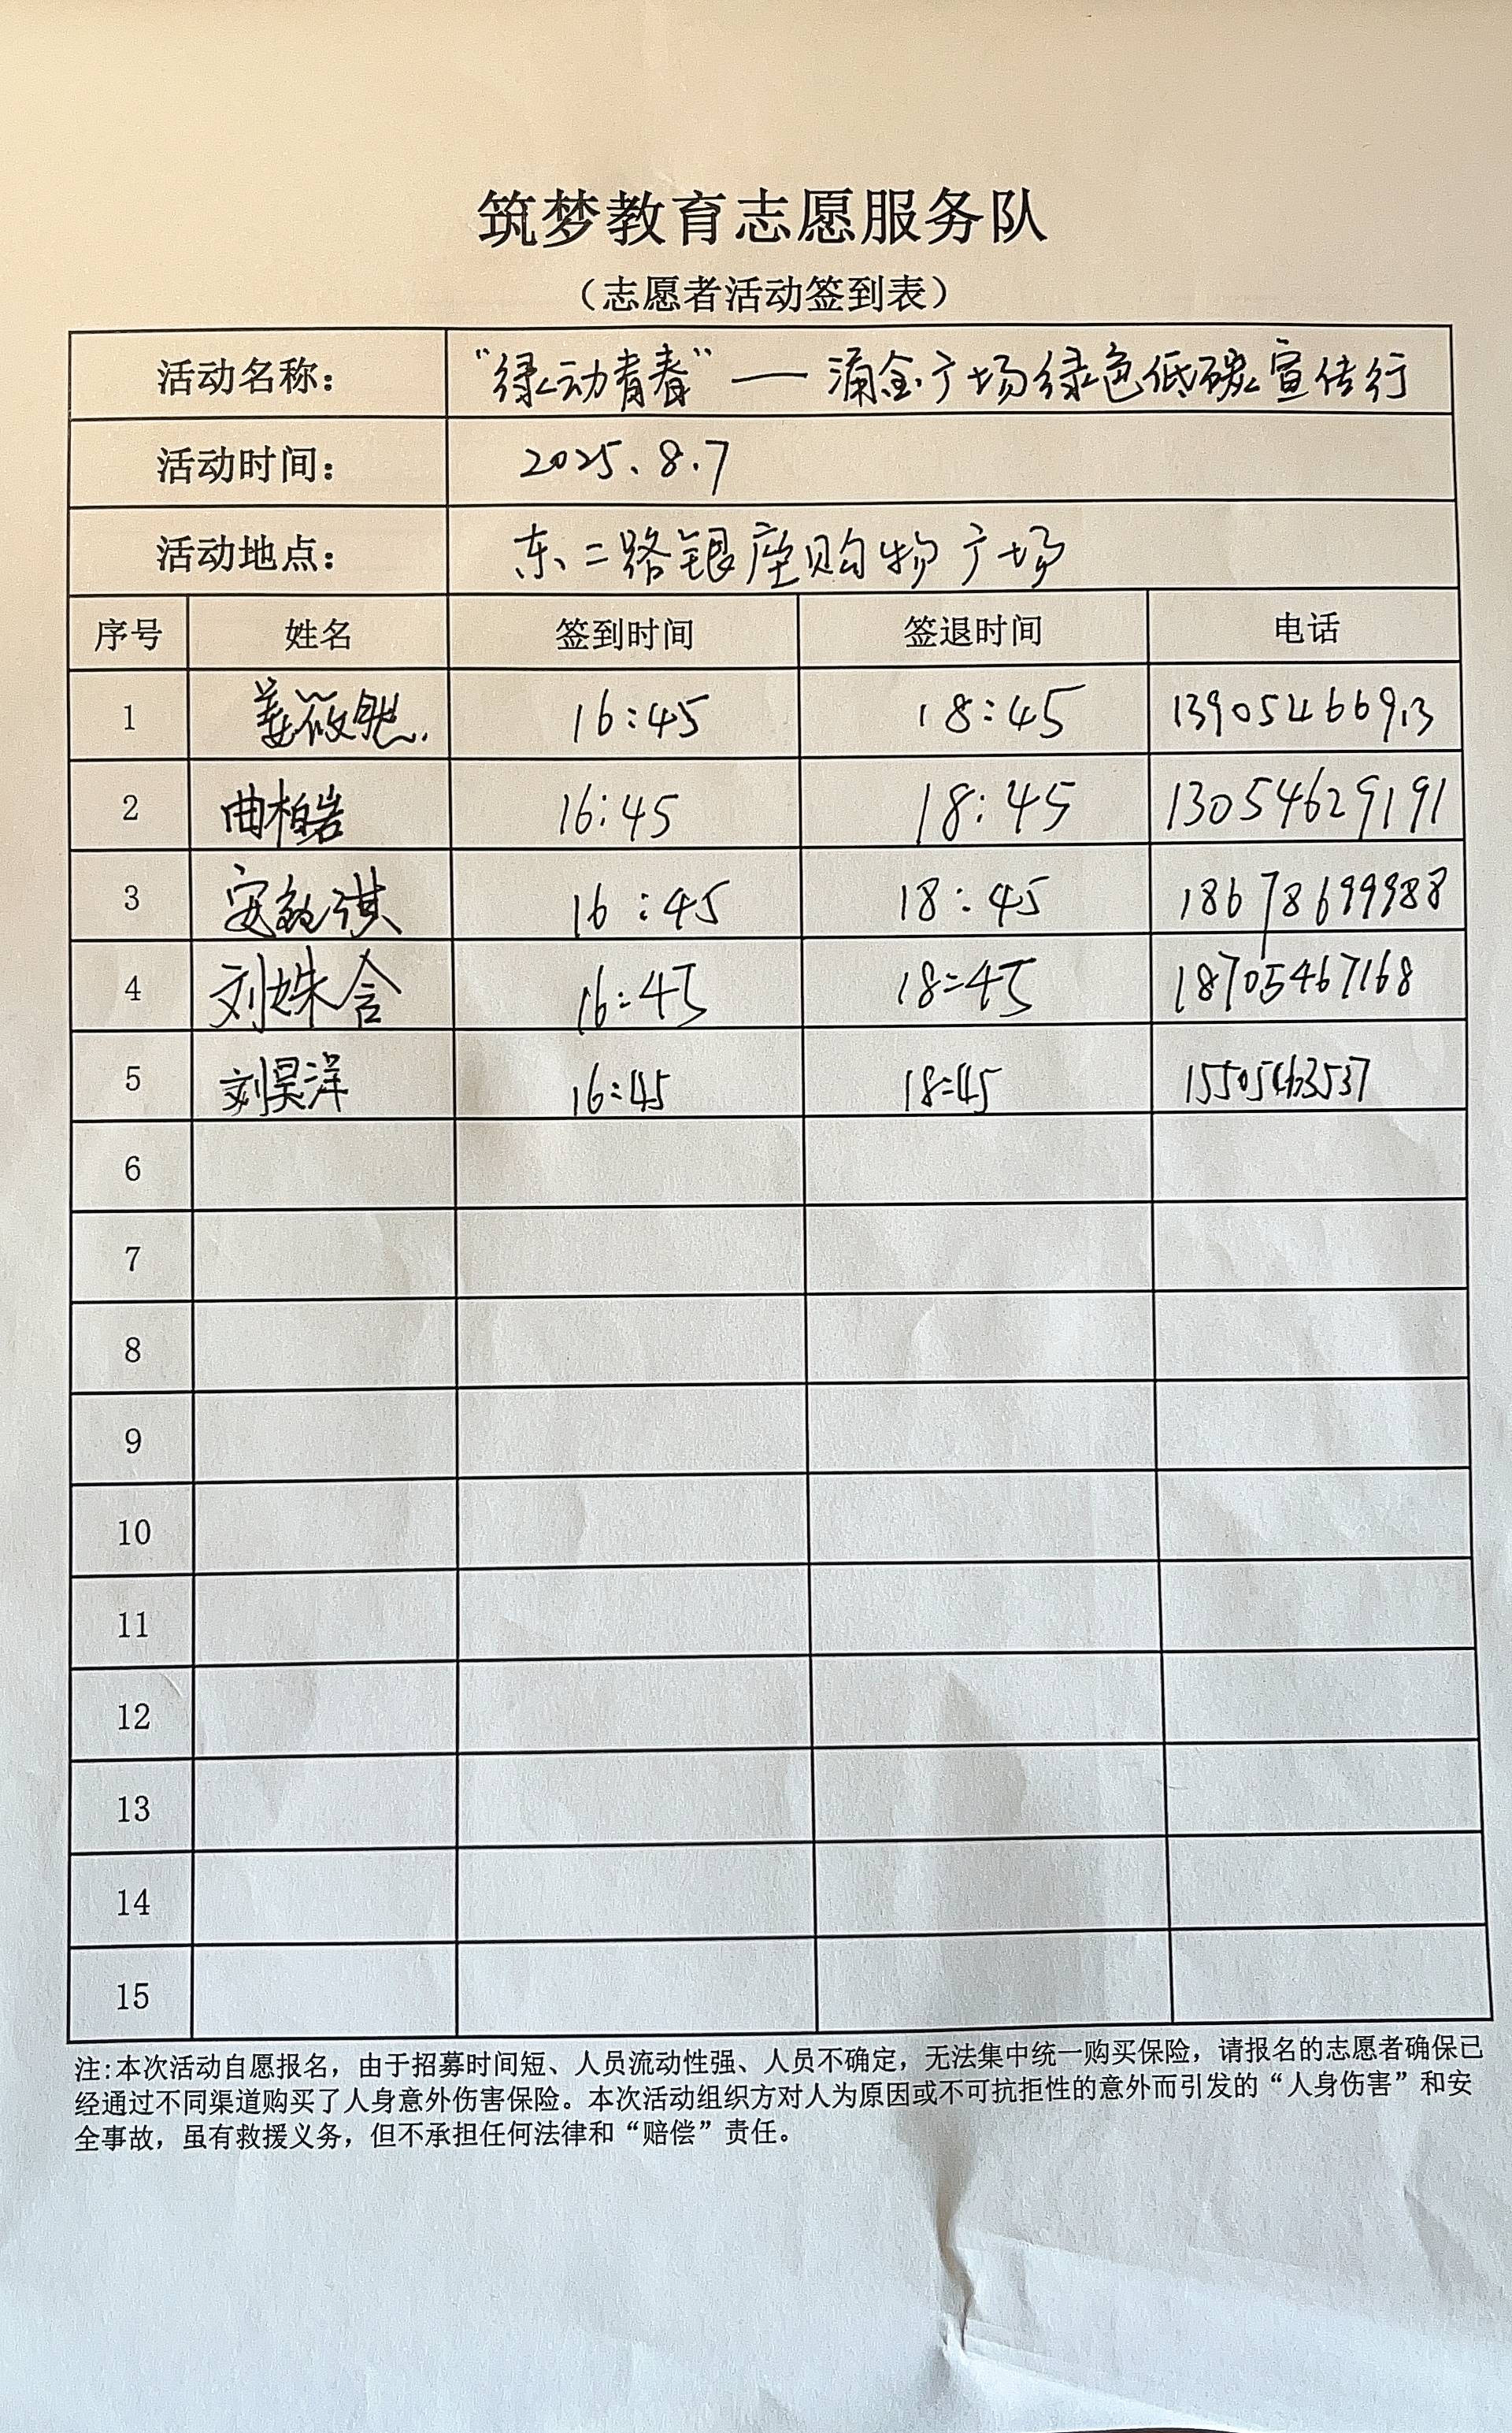 筑梦教育志愿服务队
（志愿者活动签到表）
活动名称： “绿动青春”—— 涌金广场绿色低碳宣传行
活动时间： 2025.8.7
活动地点： 东二路银座购物广场
序号 姓名 签到时间 签退时间 电话
1 姜筱然 16:45 18:45 13905466913
2 曲柏岩 16:45 18:45 13054629191
3 安毓淇 16:45 18:45 18678699988
4 刘姝含 16:45 18:45 18705467168
5 刘昊洋 16:45 18:45 15505463537
6
7
8
9
10
11
12
13
14
15
注:本次活动自愿报名，由于招募时间短、人员流动性强、人员不确定，无法集中统一购买保险，请报名的志愿者确保已
经通过不同渠道购买了人身意外伤害保险。本次活动组织方对人为原因或不可抗拒性的意外而引发的“人身伤害”和安
全事故，虽有救援义务，但不承担任何法律和“赔偿”责任。